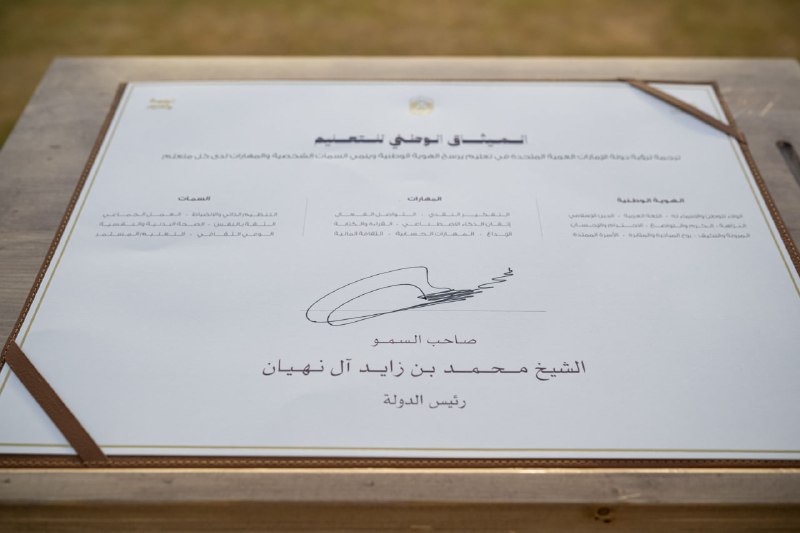 الميثاق الوطني للتعليم
ترجمة لرؤية دولة الإمارات العربية المتحدة في تعليم يرسخ الهوية الوطنية وينمي السمات الشخصية والمهارات لدى كل متعلم
الهوية الوطنية
الولاء للوطن والانتماء له - اللغة العربية - الدين الإسلامي
النزاهة - الكرم والتواضع - الاحترام والإحسان
المرونة والتكيف - روح المبادرة والمثابرة - الأسرة الممتدة
المهارات
التفكير النقدي - التواصل الفعال
إتقان الذكاء الاصطناعي - القراءة والكتابة
الإبداع - المهارات الحسابية - الثقافة المالية
السمات
التنظيم الذاتي والانضباط - العمل الجماعي
الثقة بالنفس - الصحة البدنية والنفسية
الوعي الثقافي - التعليم المستمر
صاحب السمو
الشيخ محمد بن زايد آل نهيان
رئيس الدولة